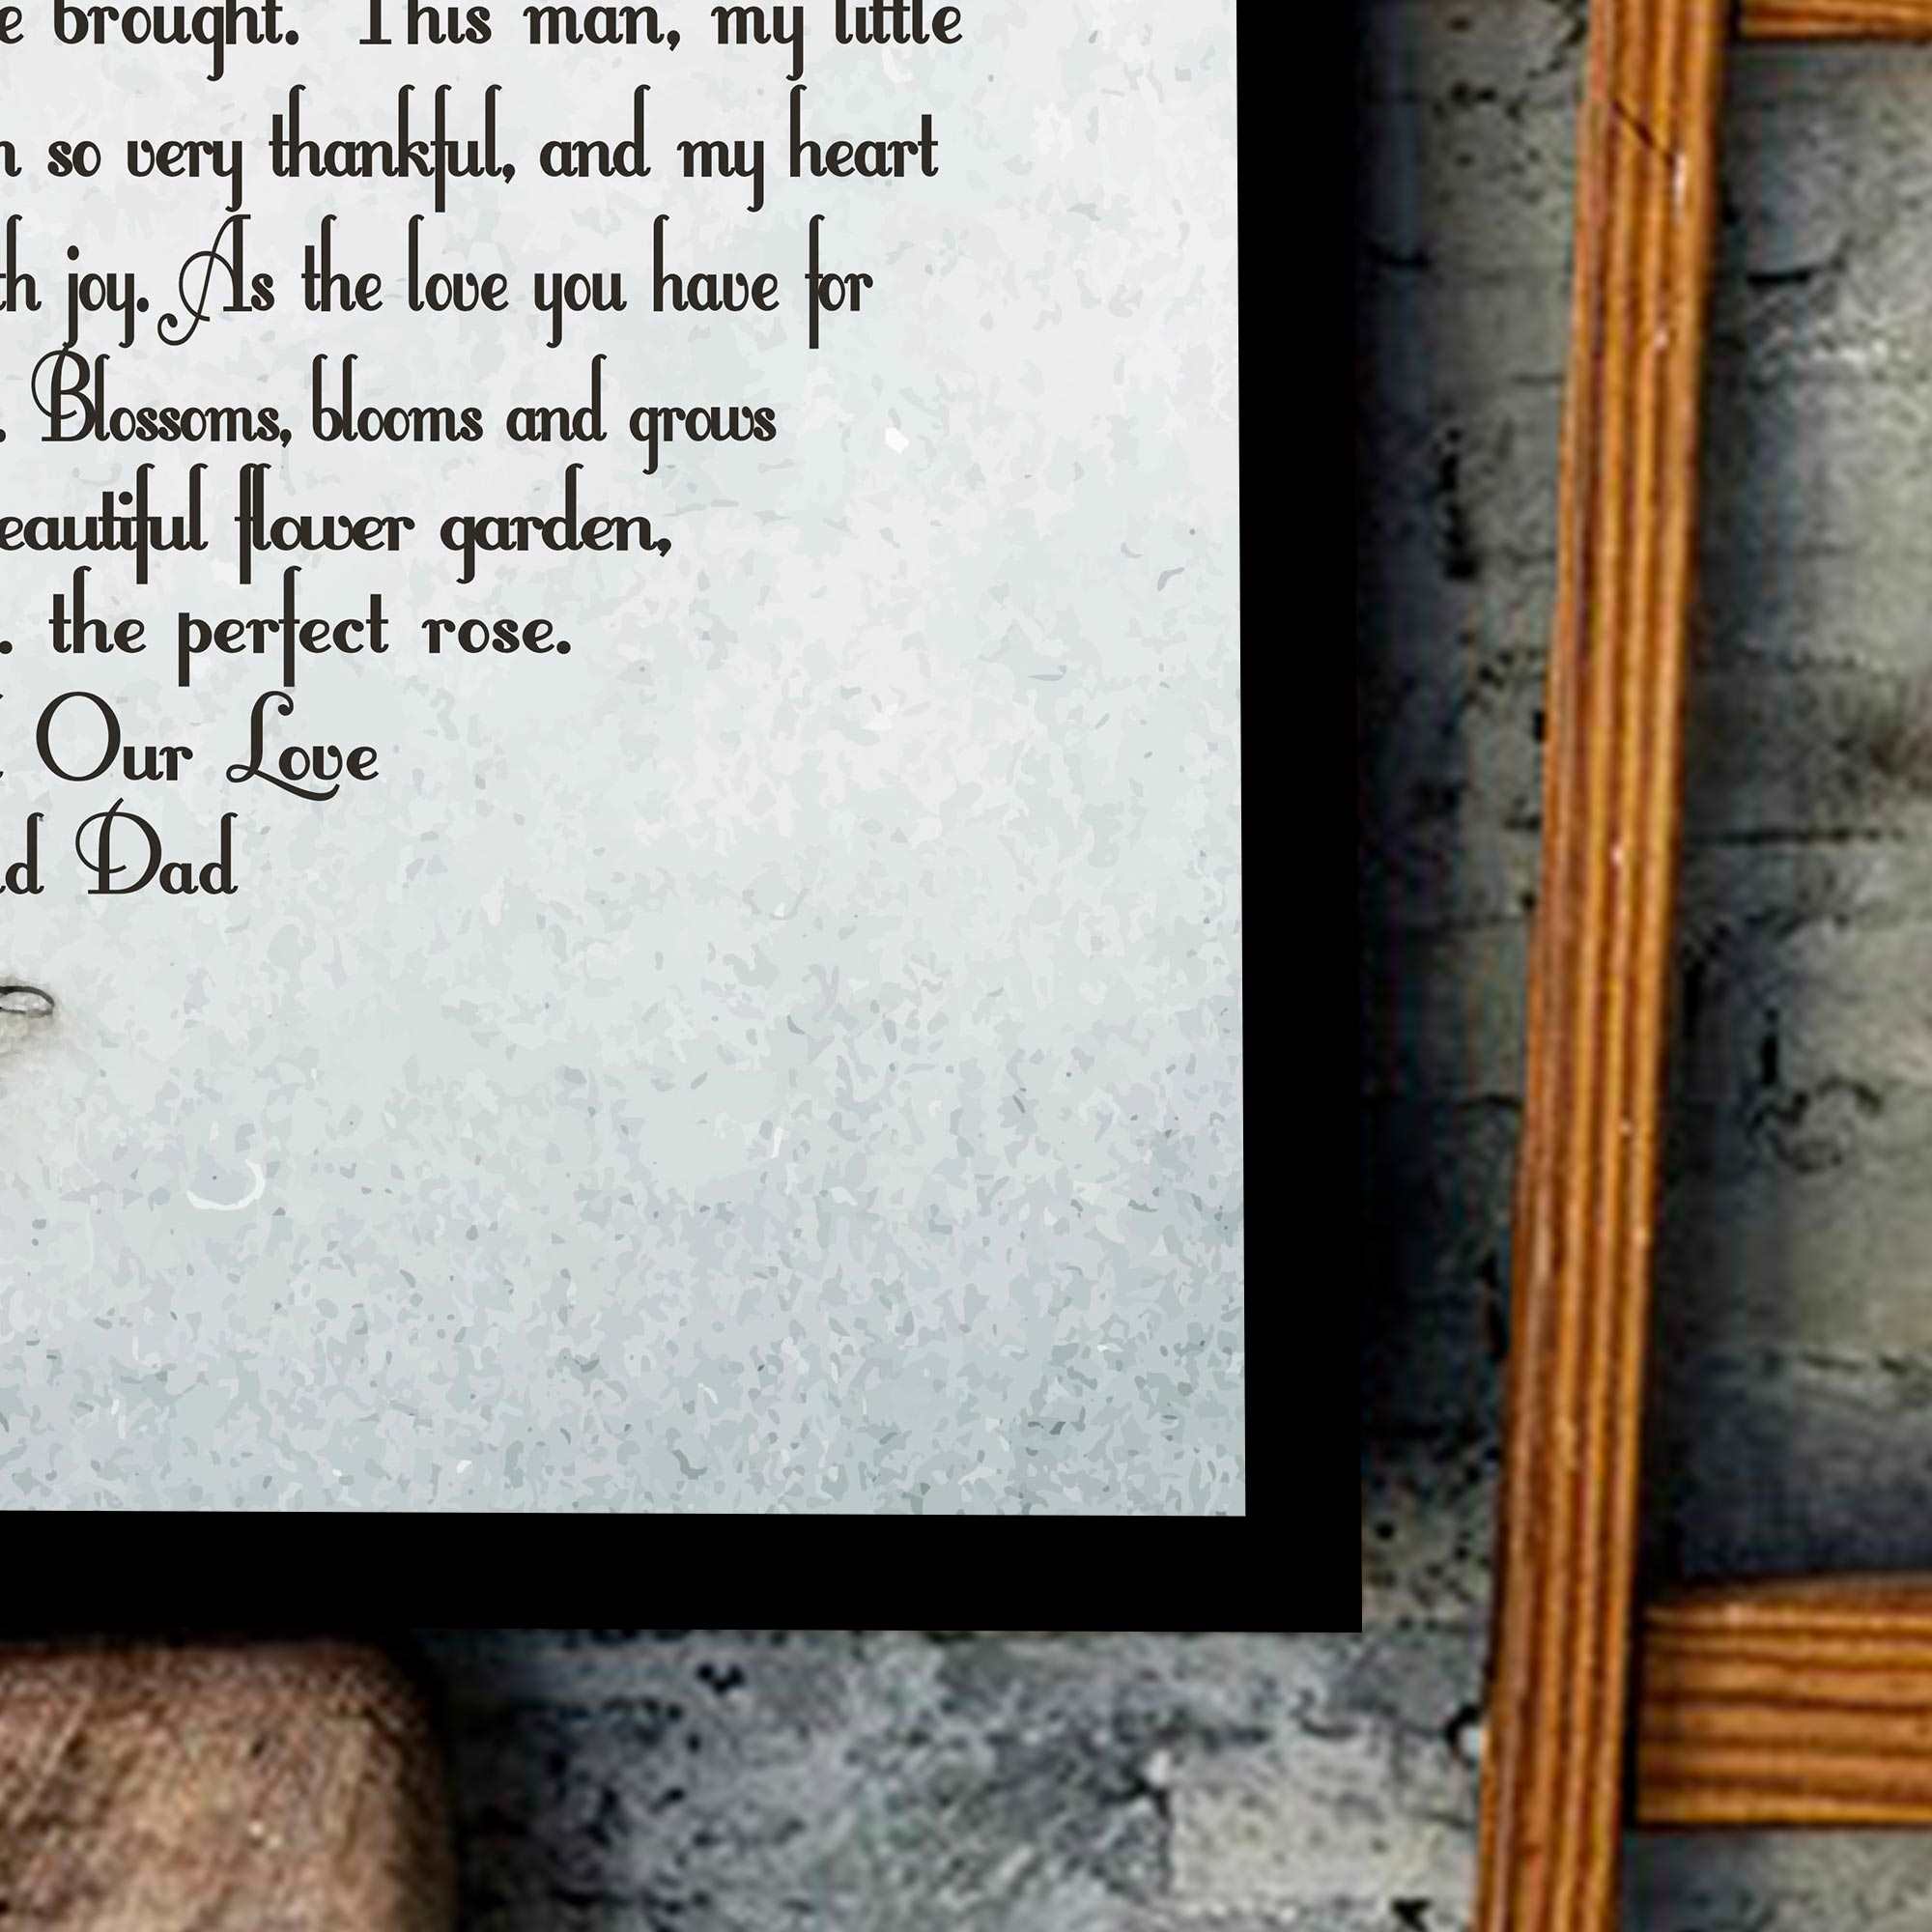 brought. This man, my little
so very thankful, and my heart
joy. As the love you have for
. Blossoms, blooms and grows
eautiful flower garden,
. the perfect rose.
Our Love
Dad